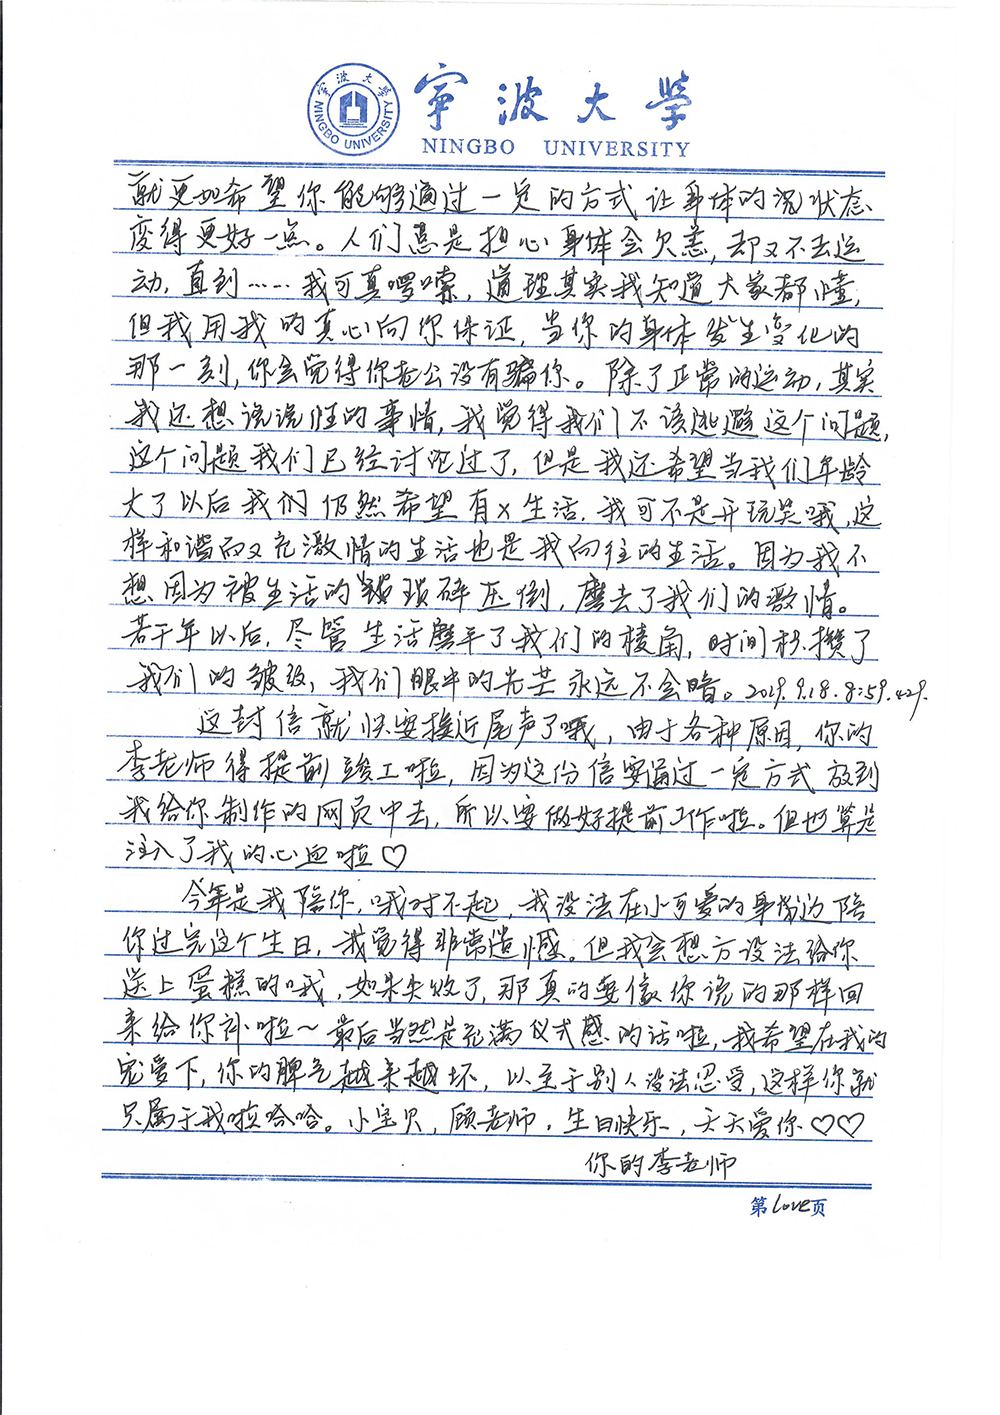 宁波大学
NINGBO UNIVERSITY
宁波大学
NINGBO UNIVERSITY
就更加希望你能够通过一定的方式让身体的况状态
变得更好一点。人们总是担心身体会欠恙，却又不去运
动，直到……我可真啰嗦，道理其实我知道大家都懂，
但我用我的真心向你保证，当你的身体发生变化的
那一刻，你会觉得你老公没有骗你。除了正常的运动，其实
我还想说说性的事情，我觉得我们不该逃避这个问题，
这个问题我们已经讨论过了，但是我还希望当我们年龄
大了以后我们仍然希望有x生活，我可不是开玩笑哦，这
样和谐而又充激情的生活也是我向往的生活。因为我不
想因为被生活的琐碎压倒，磨去了我们的激情。
若干年以后，尽管生活磨平了我们的棱角，时间积攒了
我们的皱纹，我们眼中的光芒永远不会暗。2019.9.18.8:59.429.
这封信就快要接近尾声了哦，由于各种原因，你的
李老师得提前竣工啦，因为这份信要通过一定方式放到
我给你制作的网页中去，所以要做好提前工作啦。但也算是
注入了我的心血啦♡
今年是我陪你，哦对不起，我没法在小可爱的身边陪
你过完这个生日，我觉得非常遗憾。但我会想方设法给你
送上蛋糕的哦，如果失败了，那真的要像你说的那样回
来给你补啦～最后当然是充满仪式感的话啦，我希望在我的
宠爱下，你的脾气越来越坏，以至于别人没法忍受，这样你就
只属于我啦哈哈。小宝贝，顾老师，生日快乐，天天爱你♡♡
你的李老师
第love页